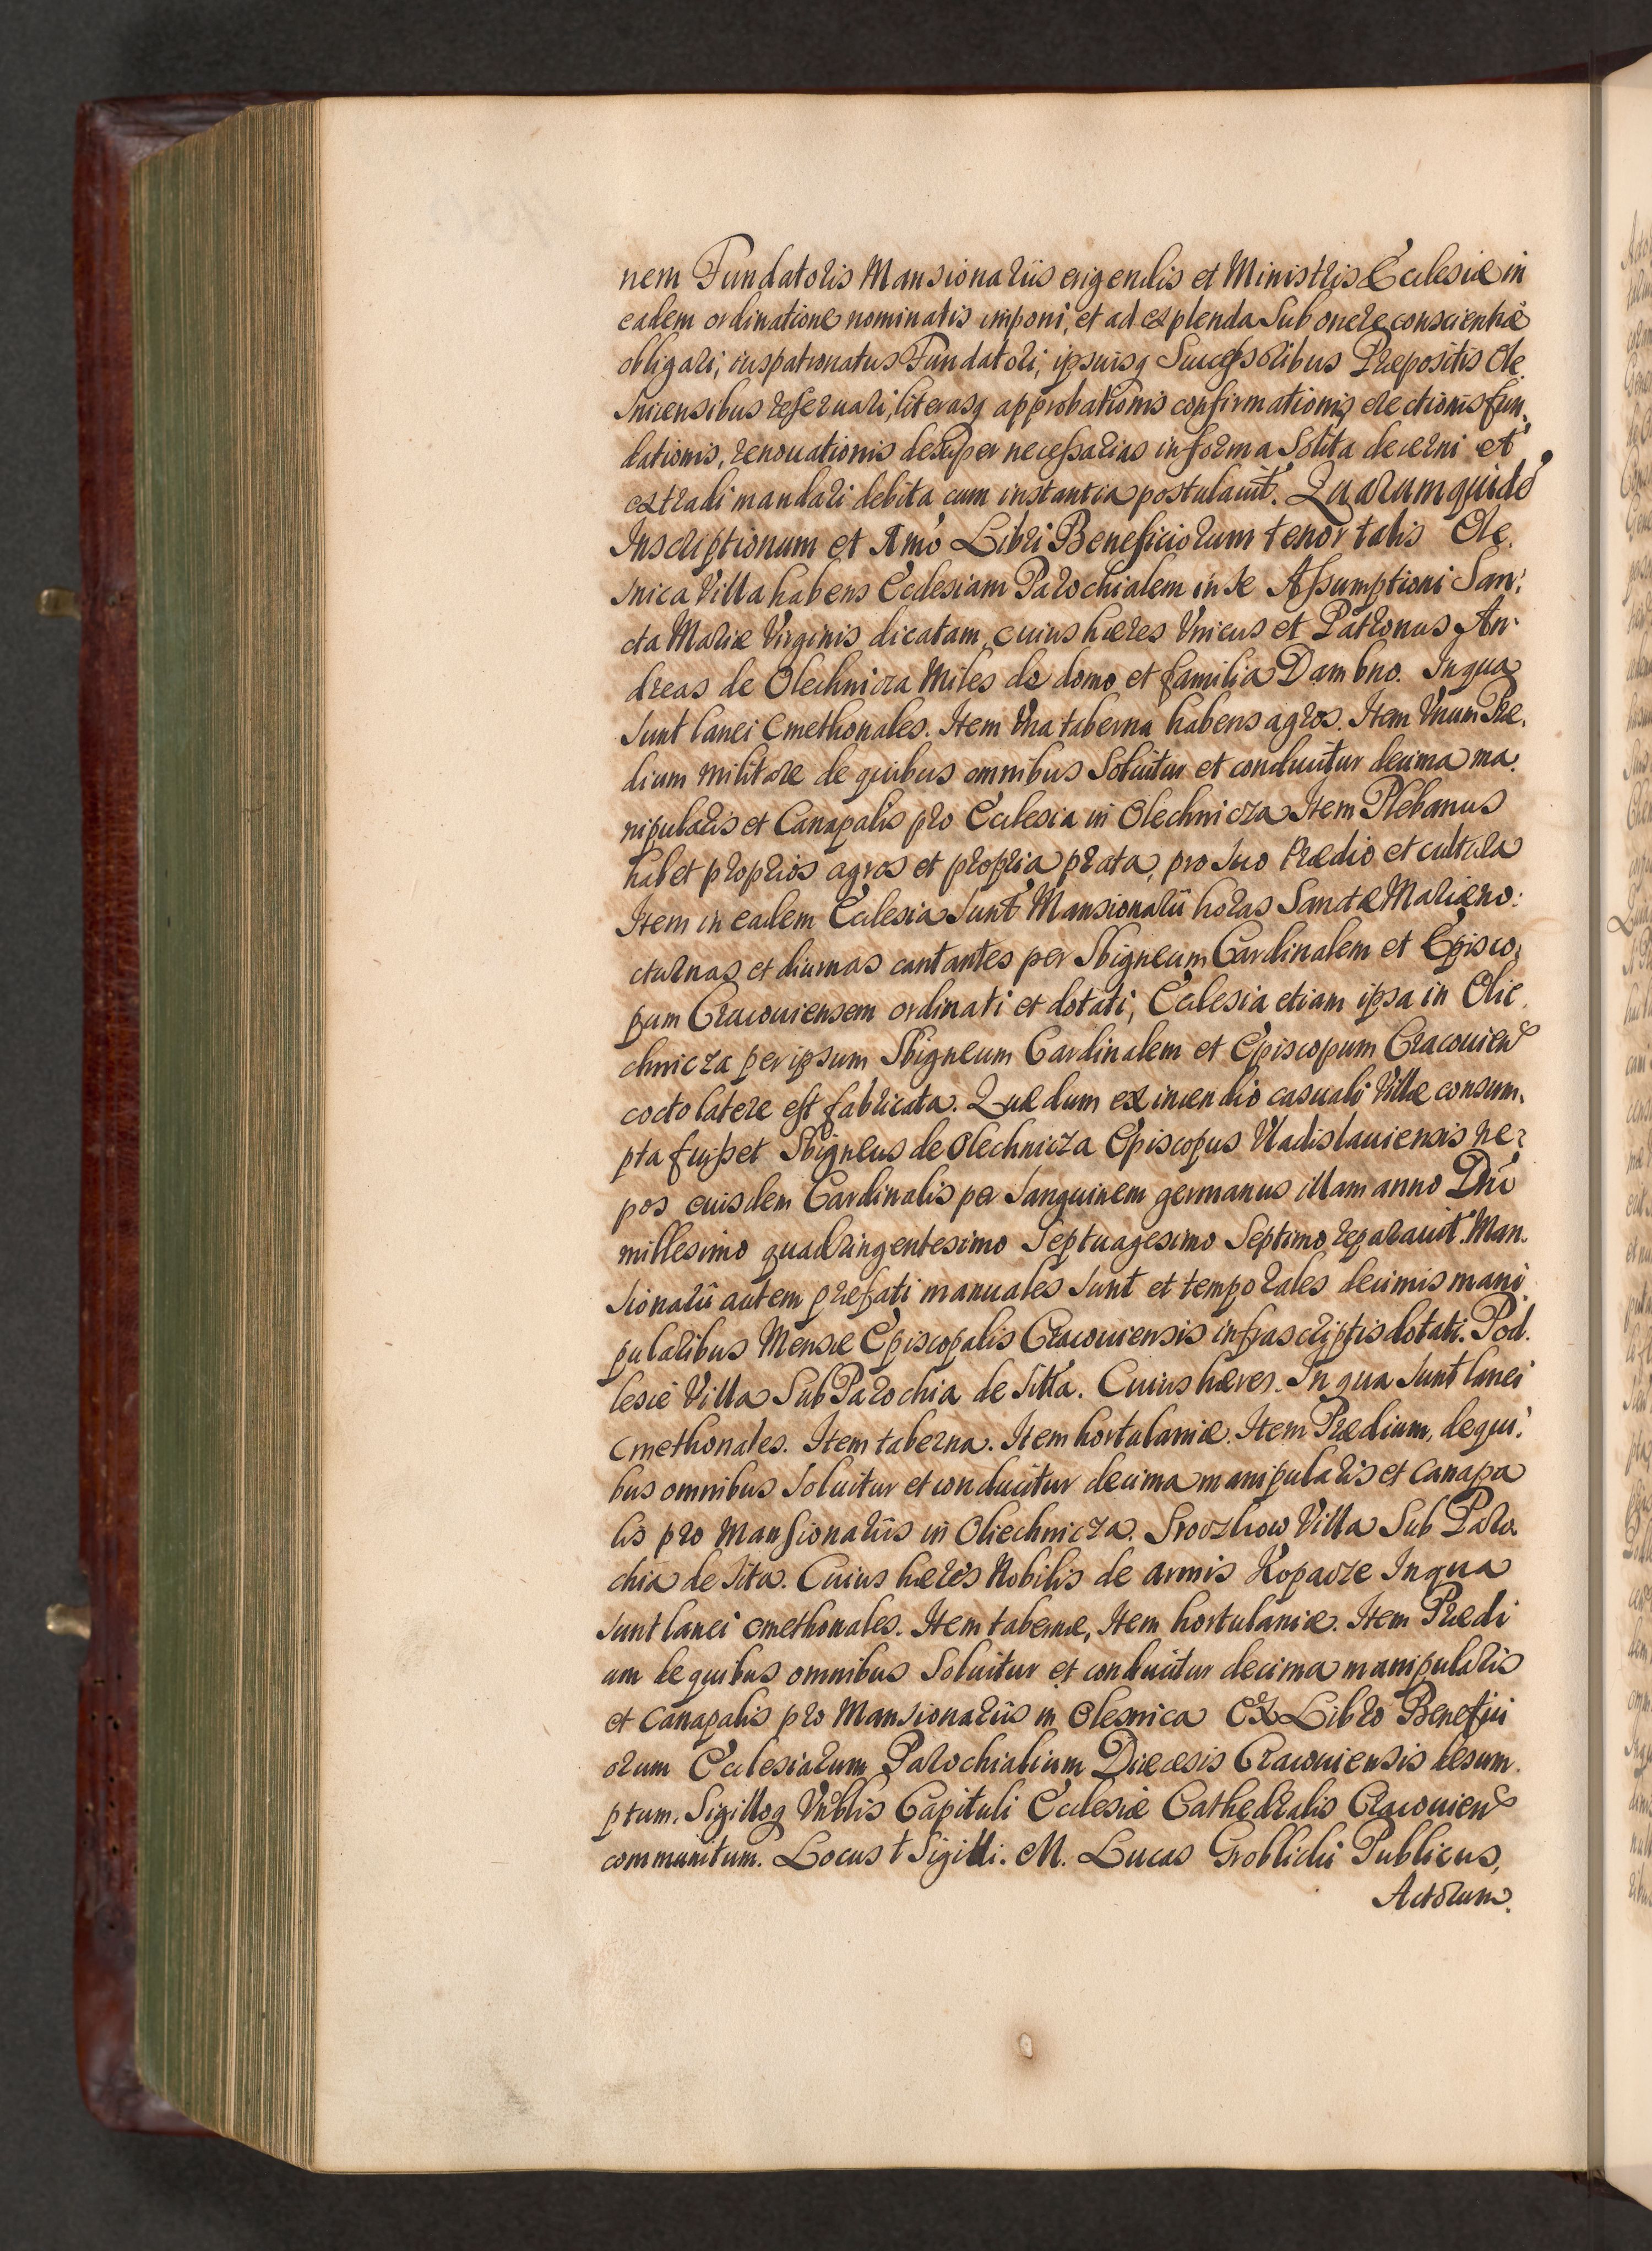 nem Fundatoris Mansionariis erigendis et Ministris Ecclesiæ in
eadem ordinatione nominatis imponi, et ad explenda sub onere conscientiæ
obligari, iuspatronatus Fundatori, ipsiusq Successoribus Præpositis Ole,
snicensibus reseruari, literasq approbationis confirmationis erectionis fun,
dationis, renouationis desuper necessarias in forma solita decerni et
extradi mandari debita cum instantia postulauit. Quarum quidē
Inscriptionum et Imō Libri Beneficiorum tenor talis Ole,
snica Villa habens Ecclesiam Parochialem in se Assumptioni San,
cta Mariæ Virginis dicatam, cuius hæres Vnicus et Patronus An,
dreas de Olechnicza Miles de domo et familia Dambno. In qua
sunt lanei Cmethonales. Item Vna taberna habens agros. Item Vnum Præ,
dium militare de quibus omnibus soluitur et conducitur decima ma,
nipularis et Canapalis pro Ecclesia in Olechnicza Item Plebanus
habet proprios agros et propria prata, pro suo Prædio et cultura
Item in eadem Ecclesia sunt Mansionarii horas Sanctæ Mariæ no:
cturnas et diurnas cantantes per Sbigneum Cardinalem et Episco,
pum Cracouiensem ordinati et dotati, Ecclesia etiam ipsa in Olie,
chnicza per ipsum Sbigneum Cardinalem et Episcopum Cracouien
cocto latere est fabricata. Quæ dum ex incendio casuali Villæ consum,
pta fuisset Sbigneus de Olechnicza Episcopus Vladislauiensis ne,
pos eiusdem Cardinalis per sanguinem germanus illam anno Dni
millesimo quadringentesimo septuagesimo septimo reparauit. Man,
sionarii autem præfati manuales sunt et temporales decimis mani,
pularibus Mensæ Episcopalis Cracouiensis infrascriptis dotati. Pod,
lesie Villa Sub Parochia de sitta. Cuius hæres. In qua sunt lanei
cmethonales. Item taberna. Item hortulaniæ. Item Prædium, de qui,
bus omnibus soluitur et conducitur decima manipularis et canapa
lis pro Mansionariis in Oliechnicza. Sroczkow Villa Sub Paro,
chia de sita. Cuius hæres Nobilis de armis Kopacze In qua
sunt lanei cmethonales. Item tabernæ, Item hortulaniæ. Item Prædi
um de quibus omnibus soluitur et conducitur decima manipularis
et canapalis pro Mansionariis in Olesnica Ex Libro Benefici
orum Ecclesiarum Parochialium Diæcesis Cracouiensis desum,
ptum, Sigilloq Vnblis Capituli Ecclesiæ Cathedralis Cracouien
communitum. Locus † Sigilli. M. Lucas Groblicki Publicus,
Actorum.